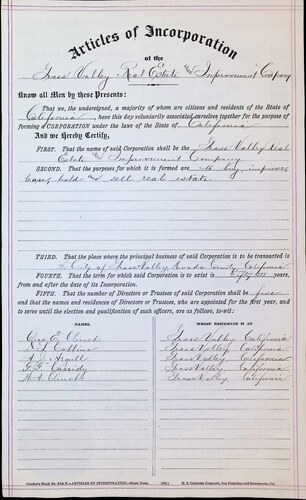 Articles of Incorporation
of the
Grass Valley Real Estate and Improvement Company
Know all Men by these Presents:
That we, the undersigned, a majority of whom are citizens and residents of the State of
California, have this day voluntarily associated ourselves together for the purpose of
forming a CORPORATION under the laws of the State of California
And we Hereby Certify,
FIRST. That the name of said Corporation shall be the Grass Valley Real
Estate and Improvement Company.
SECOND. That the purposes for which it is formed are to buy, improve,
lease, hold and sell real estate.
THIRD. That the place where the principal business of said Corporation is to be transacted is
City of Grass Valley, Nevada County, California
FOURTH. That the term for which said Corporation is to exist is Fifty (50) years,
from and after the date of its Incorporation.
FIFTH. That the number of Directors or Trustees of said Corporation shall be five
and that the names and residences of Directors or Trustees, who are appointed for the first year, and
to serve until the election and qualification of such officers, are as follows, to-wit:
NAMES. WHOSE RESIDENCE IS AT
Geo. E. Grass Valley California
Grass Valley, California
A. J. Grass Valley, California
Cassidy Grass Valley, California
Grass Valley, California
ARTICLES OF INCORPORATION.